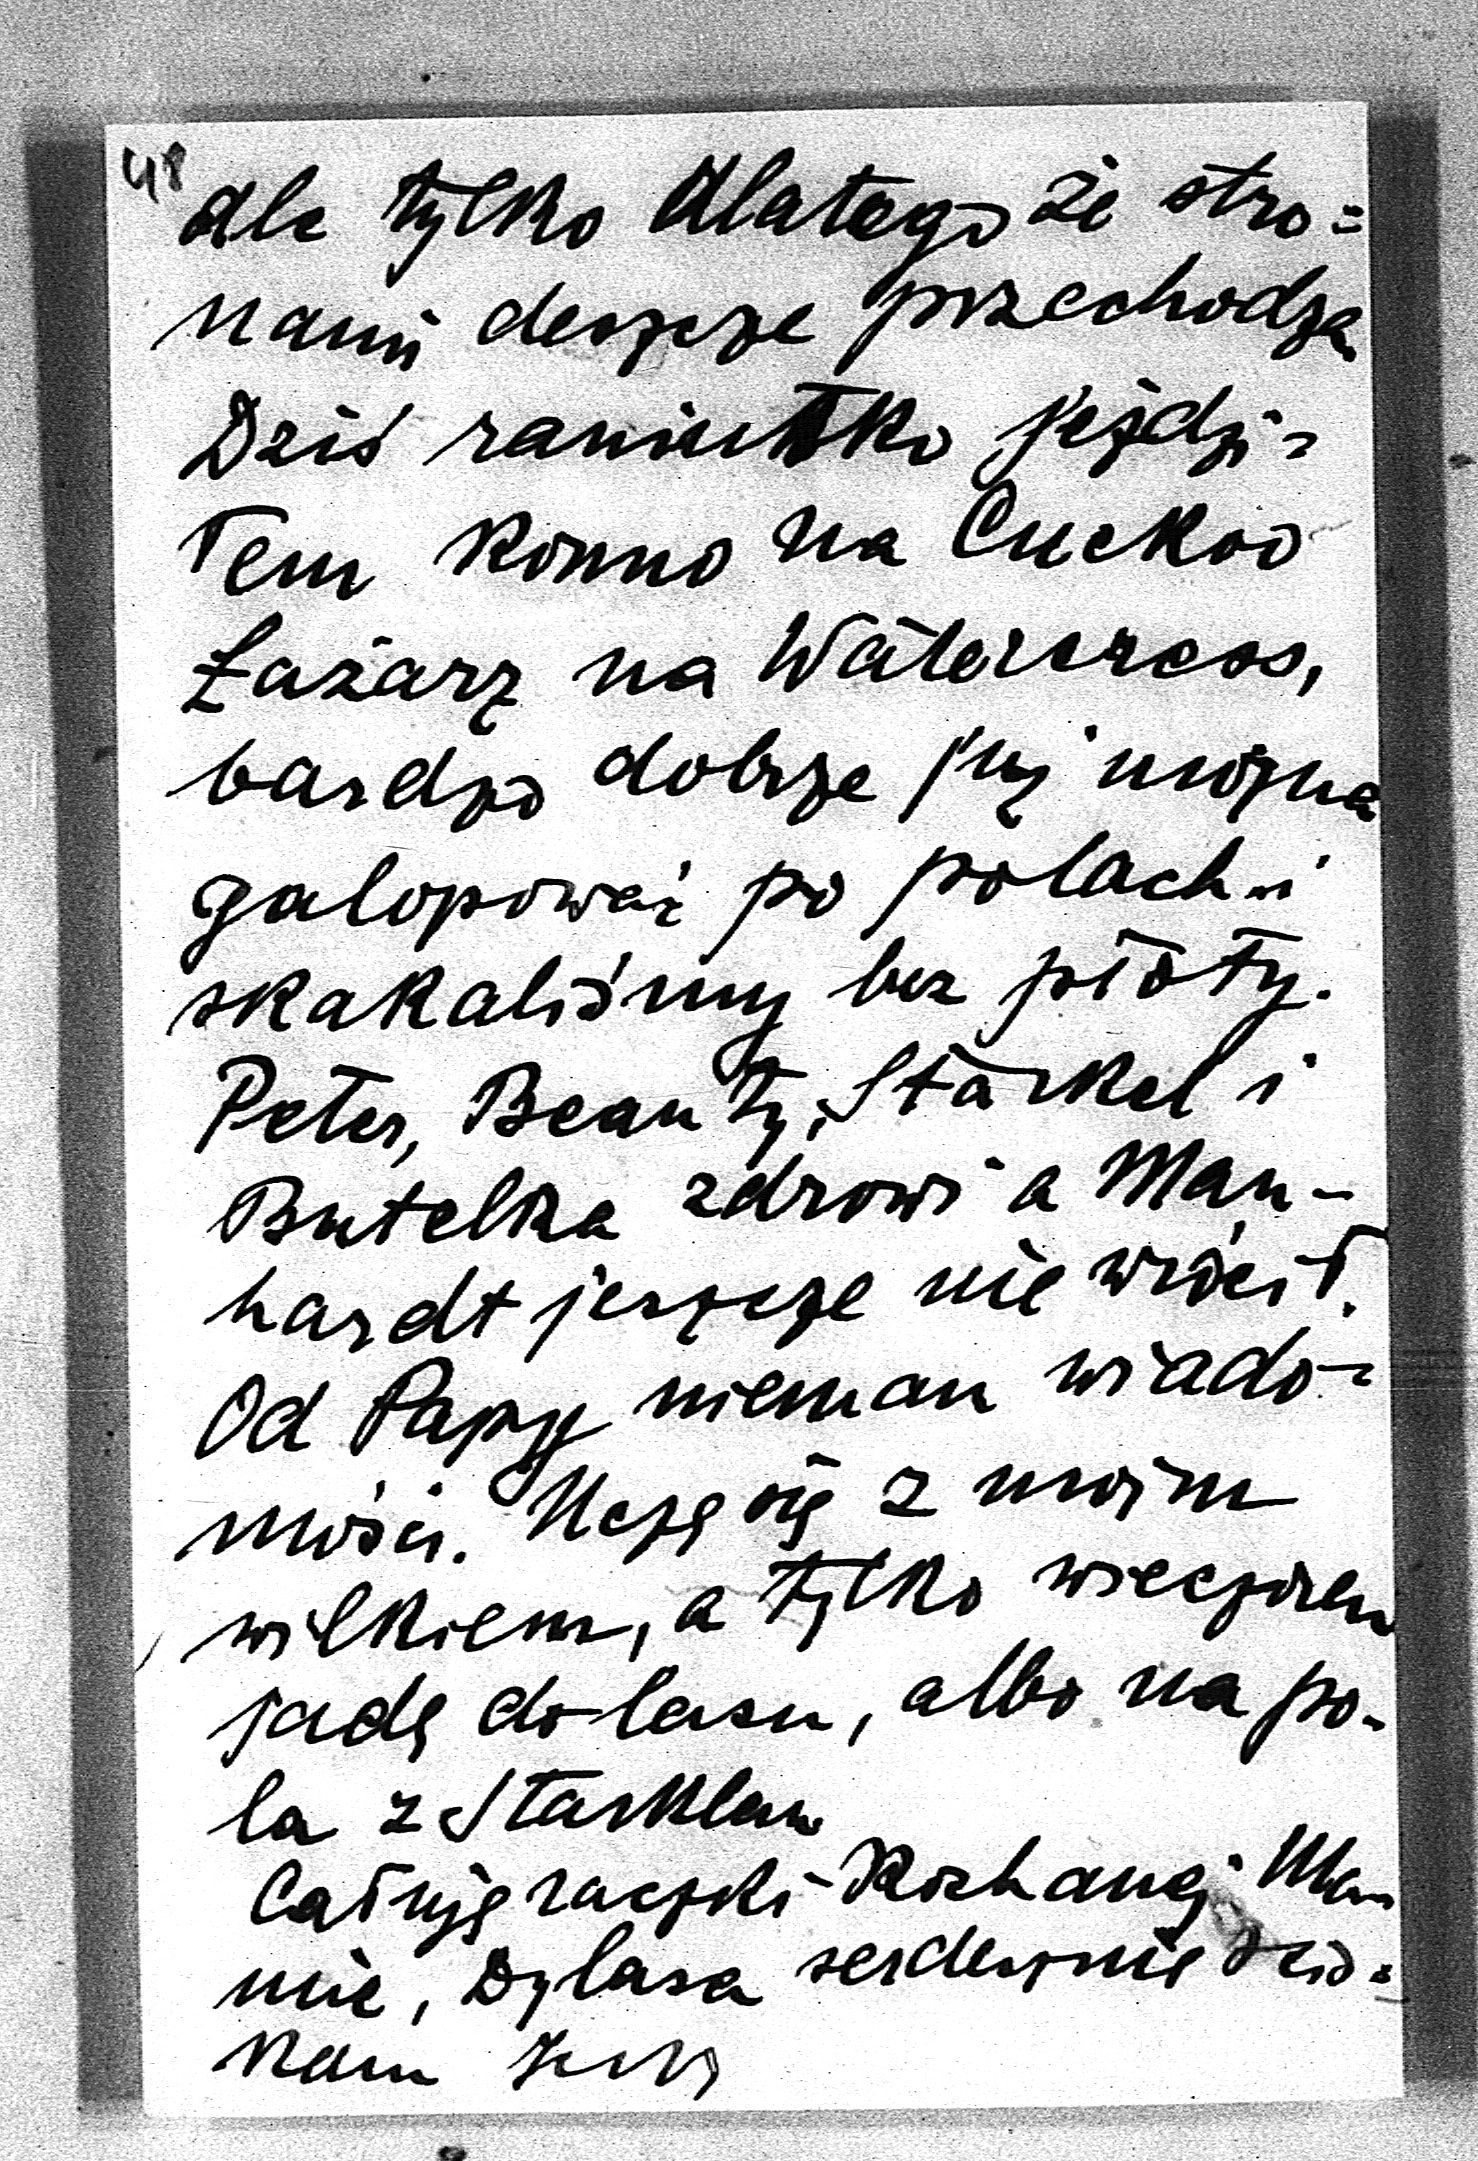 48
ale tylko dlatego że stro=
nami deszcze przechodzą
Dziś raniutko jeździ=
łem konno na Cuckoo
Łazarz na Watercress,
bardzo dobrze już można
galopować po polach i
skakaliśmy bez płoty.
Peter, Beauty, Starkel i
Butelka zdrowi a Man-
hardt jeszcze nie wrócił.
Od Papy niemam wiado-
mości. Uczę się z moim
wilkiem, a tylko wieczorem
jadę do lasu, albo na po-
la z Starklem
Całuję rączki Kochanej Ma
mie, Dylasa serdecznie ścis=
kam